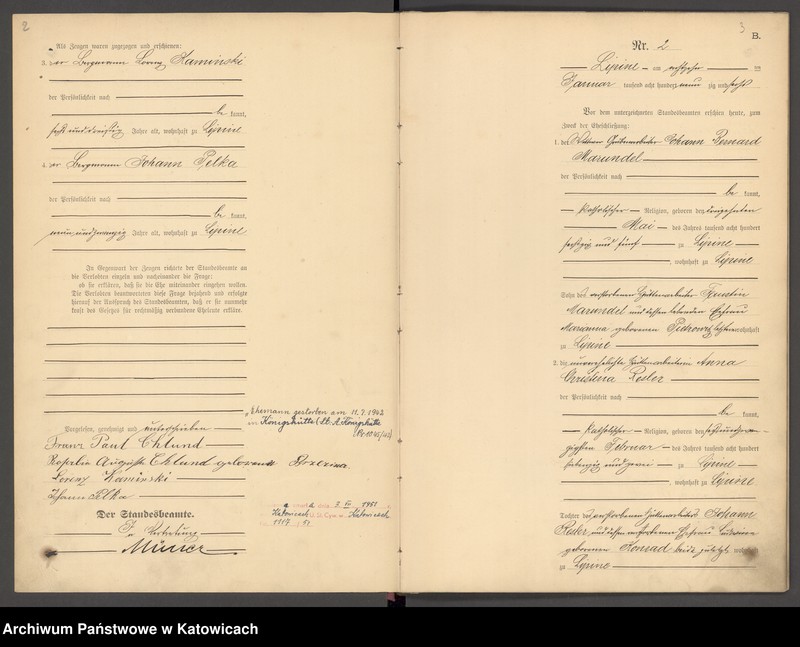 2
Als Zeugen waren zugezogen und erschienen:
3. der Bergmann Lorenz Kaminski
der Persönlichkeit nach
be kannt,
sechs und dreißig Jahre alt, wohnhaft zu Lipine
4. der Bergmann Johann Pelka
der Persönlichkeit nach
be kannt,
neun und zwanzig Jahre alt, wohnhaft zu Lipine
In Gegenwart der Zeugen richtete der Standesbeamte an
die Verlobten einzeln und nacheinander die Frage:
ob sie erklären, daß sie die Ehe miteinander eingehen wollen.
Die Verlobten beantworteten diese Frage bejahend und erfolgte
hierauf der Ausspruch des Standesbeamten, daß er sie nunmehr
kraft des Gesetzes für rechtmäßig verbundene Eheleute erkläre.
Vorgelesen, genehmigt und unterschrieben
Franz Paul Chlund
Rosalie Auguste Chlund geborene Brzezina
Lorenz Kaminski
Johann Pelka
Der Standesbeamte.
In Vertretung
Ehemann gestorben am 11.7.1942
in Königshütte (St. A. Königshütte
1951
Katowicach
3
B.
Nr. 2
Lipine am achtzehn ten
Januar tausend acht hundert neun zig und sechs
Vor dem unterzeichneten Standesbeamten erschien heute, zum
Zweck der Eheschließung:
1. der Hüttenarbeiter Johann Bernard
Marundel
der Persönlichkeit nach
be kannt,
katholischer Religion, geboren den dreizehnten
Mai des Jahres tausend acht hundert
sechzig und fünf zu Lipine
, wohnhaft zu Lipine
Sohn des verstorbenen Hüttenarbeiter Faustin
Marundel und dessen lebenden Ehefrau
Marianna geborenen Piotrowitz wohnhaft
zu Lipine
2. die unverehelichte Hüttenarbeiterin Anna
Christina Rosler
der Persönlichkeit nach
be kannt,
katholischer Religion, geboren den sechsundzwan-
zigsten Februar des Jahres tausend acht hundert
siebenzig und zwei zu Lipine
, wohnhaft zu Lipine
Tochter des verstorbenen Hüttenarbeiters Johann
Rosler und dessen verstorbenen Ehefrau
geborenen Konrad beide zuletzt wohnhaft
zu Lipine
Archiwum Państwowe w Katowicach